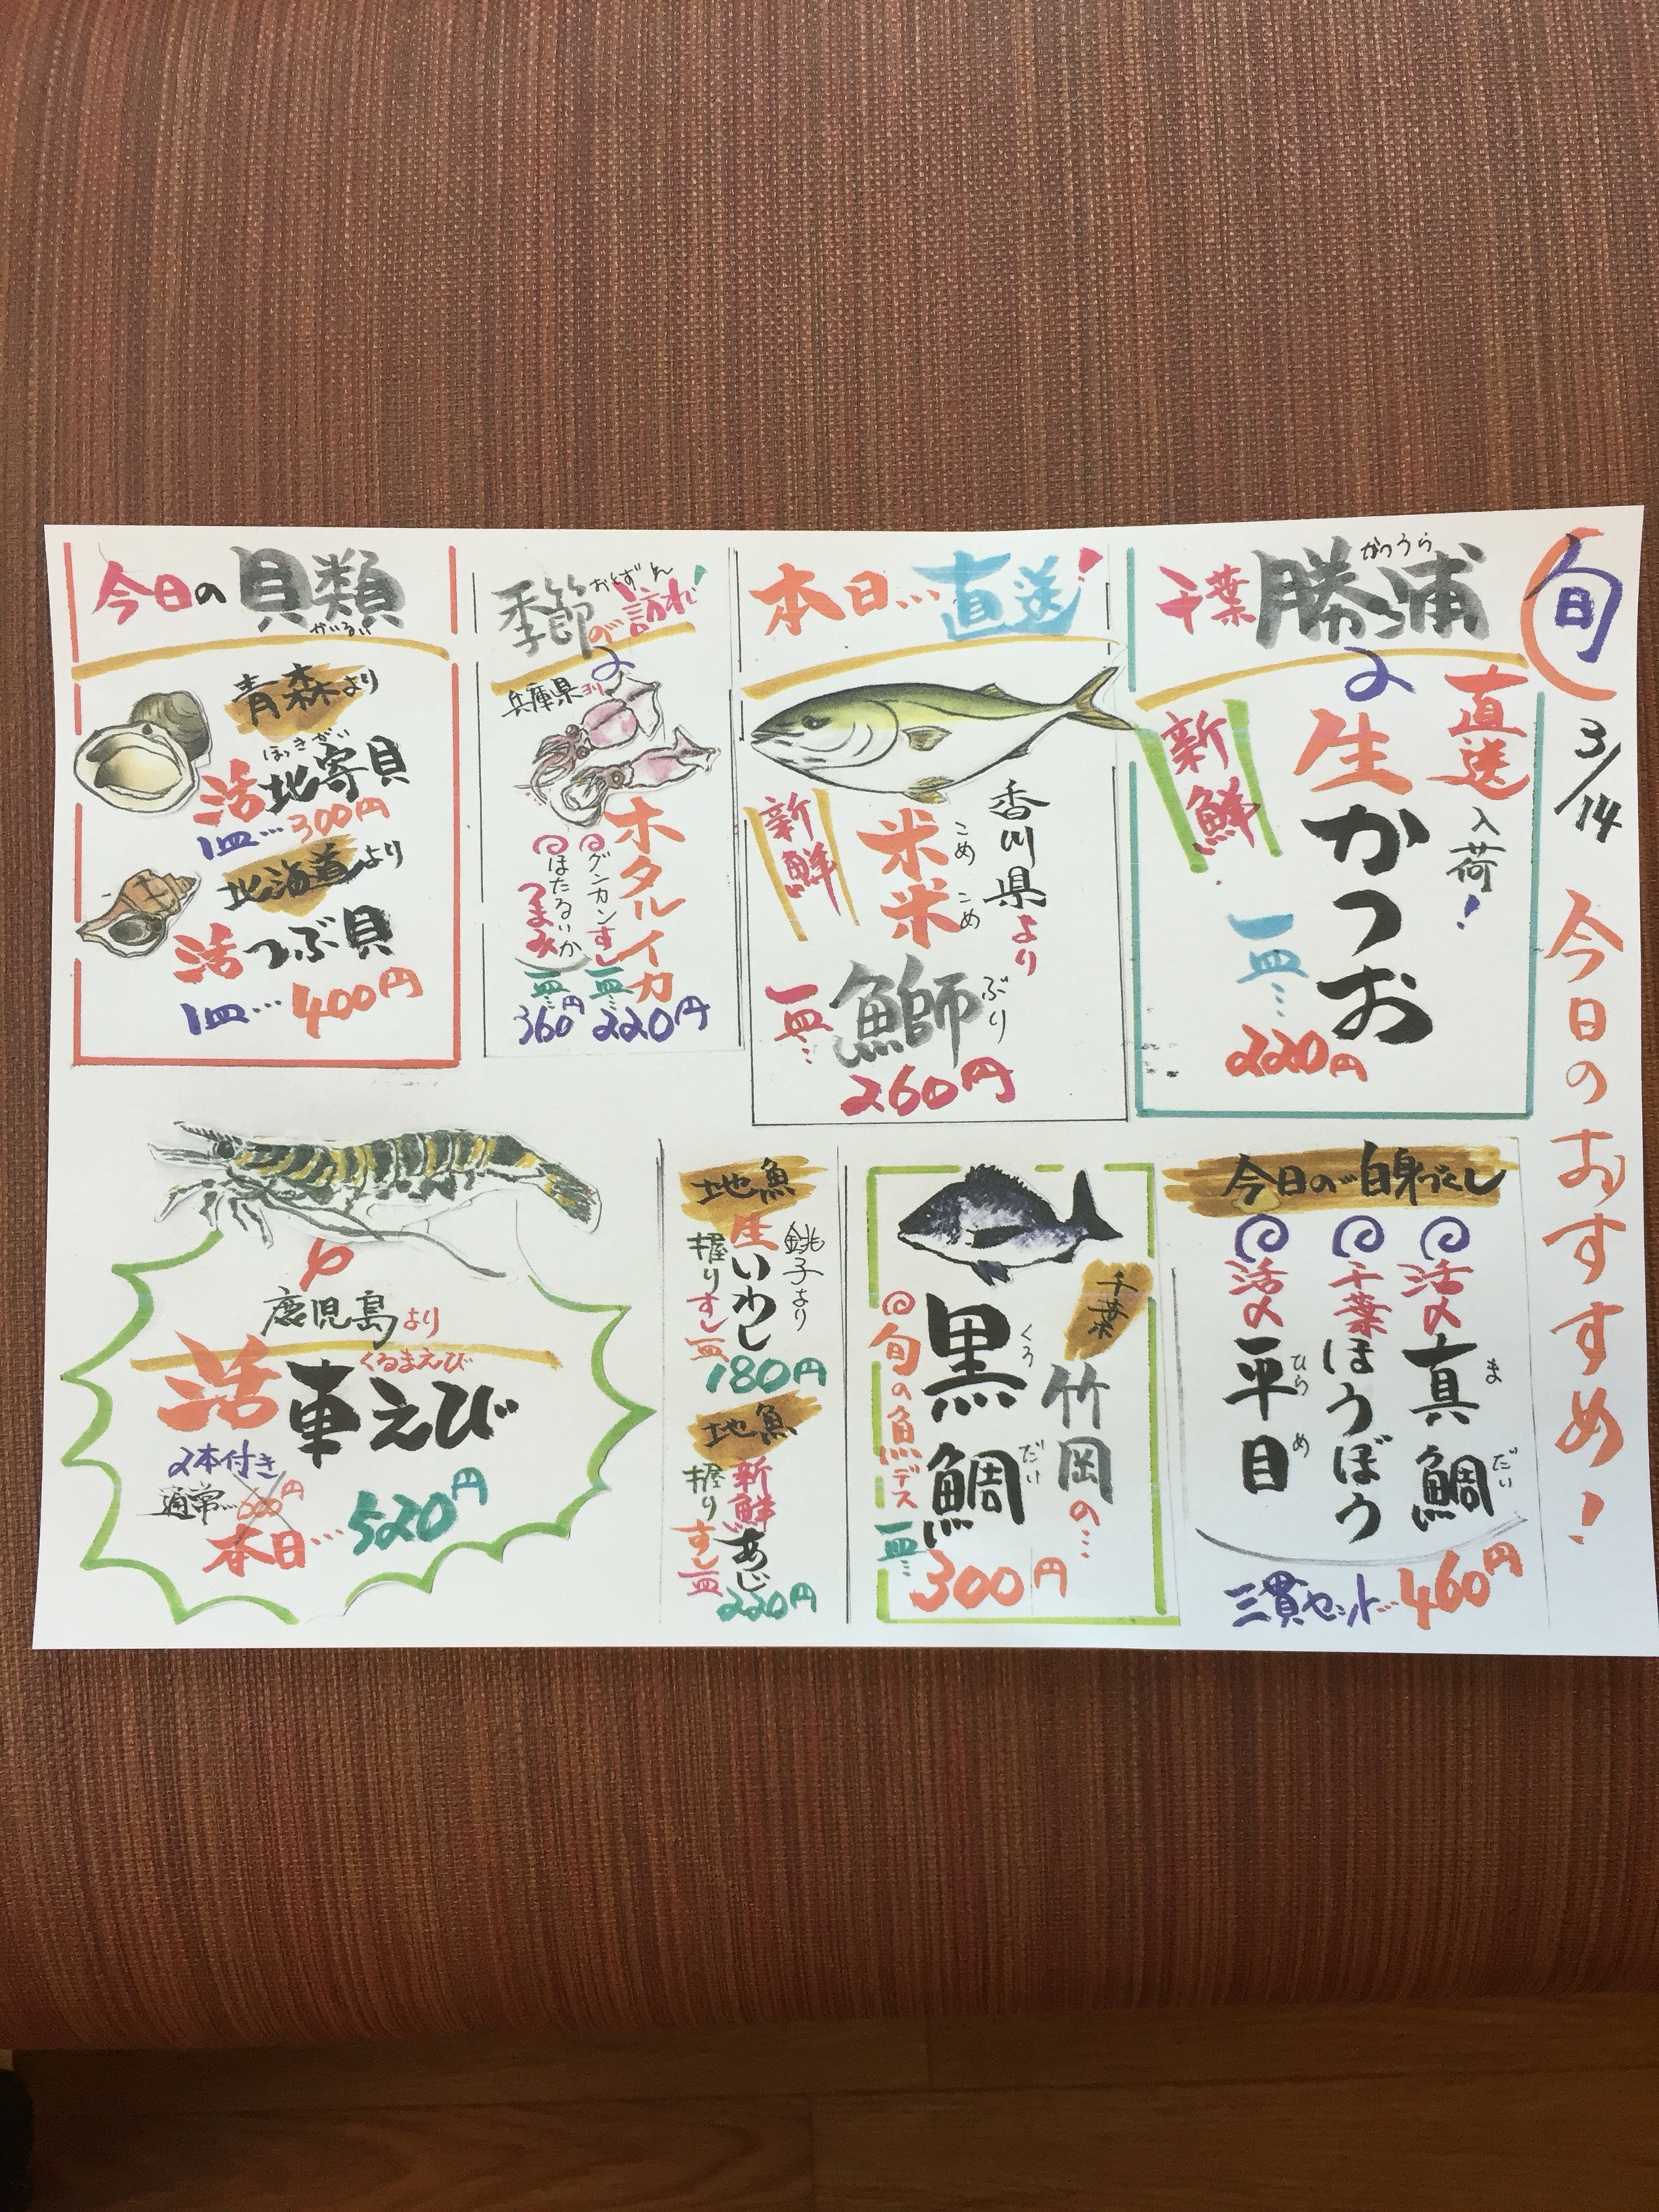 旬
3/14
今日のおすすめ!
千葉勝浦
かつうら
直送
入荷!
生かつお
新鮮
一皿…
220円
本日…直送!
香川県より
米米鰤
こめこめぶり
新鮮
一皿…
260円
季節の訪れ!
おとずれ
兵庫県ヨリ
ホタルイカ
グンカンすし
一皿…
220円
ほたるいか
つまみ
一皿…
360円
今日の貝類
かいるい
青森より
ほっきがい
活地寄貝
1皿…300円
北海道より
活つぶ貝
1皿…400円
今日の白身づくし
活〆真鯛
まだい
千葉ほうぼう
活〆平目
ひらめ
三貫セット…460円
千葉
竹岡の…
黒鯛
くろだい
旬の魚デス
一皿…
300円
地魚
銚子より
生いわし
握りすし一皿
180円
地魚
新鮮あじ
握りすし一皿
220円
鹿児島より
くるまえび
活車えび
2本付き
通常…600円
本日…520円